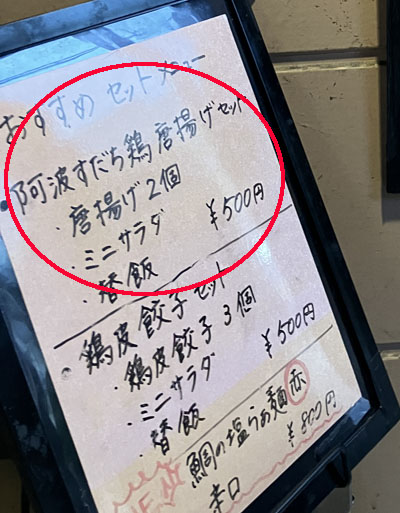 おすすめ セットメニュー
・阿波すだち鶏 唐揚げセット
・唐揚げ2個
・ミニサラダ ¥500円
・替飯
・鶏皮餃子セット
・鶏皮餃子 3個
・ミニサラダ ¥500円
・替飯
鯛の塩らぁ麺 赤
辛口 ¥800円